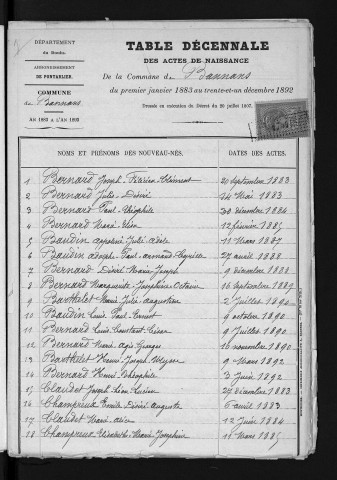 DÉPARTEMENT
du Doubs.
ARRONDISSEMENT
DE PONTARLIER
COMMUNE
de Bannans
AN 1883 A L'AN 1892
TABLE DÉCENNALE
DES ACTES DE NAISSANCE
De la Commune de Bannans
du premier janvier 1883 au trente-et-un décembre 1892
Dressée en exécution du Décret du 20 juillet 1807.
NOMS ET PRÉNOMS DES NOUVEAU-NÉS. DATES DES ACTES.
1 Bernard Joseph Clément 21 septembre 1883
2 Bernard Jules Désiré 24 Mai 1883
3 Bernard Paul Théophile 30 décembre 1884
4 Bernard Marie 12 février 1885
5 Baudin Appoline Julie Adèle 11 Mars 1887
6 Baudin Joseph Paul Armand 27 avril 1888
7 Bernard Désiré Marie Joseph 9 décembre 1888
8 Bernard Marguerite Joséphine 16 septembre 1889
9 Barthelet Marie Julie Augustine 2 Juillet 1890
10 Baudin Louis Paul Ernest 4 octobre 1890
11 Bernard Louis Constant César 9 Juillet 1890
12 Bernard Georges 16 novembre 1890
13 Barthelet Henri Joseph Ulysse 9 Mars 1892
14 Bernard Henri Théophile 3 Juin 1892
15 Claudet Joseph Léon Lucien 27 décembre 1883
16 Champreux Emile Désiré Auguste 6 avril 1883
17 Claudet Marie Alice 12 Juin 1884
18 Champreux Elisabeth Marie Joséphine 11 Mars 1885